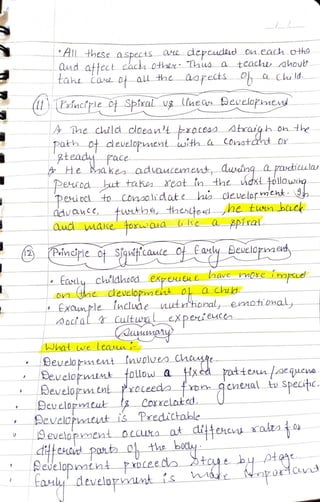 • All these aspects are depended on each otho
and affect each other. Thus a teacher shoult
take care of all the aspects of a child.
(11) Principle of Spiral vs linear Development
→ The child doesn't process straigh on the
path of development with a constant or
steady pace
→ He makes advancement, during a particular
period but takes rest in the next following
period to consolidate his development. In
advance, further, therefore, he turn back
and make forward like a spiral.
(12) Principle of Significance of Early Development
• Early childhood experience have more impact
on the development of a child
• Example include nutritional, emotional,
social & cultural experiences
Summary
What we learn:-
• Development involves change.
• Development follow a fixed pattern/sequence
• Development proceeds from general to specific.
• Development is Correlated.
• Development is Predictable
• Development occurs at different rates for
different parts of the body.
• Development proceeds stage by stage.
• Early development is more important